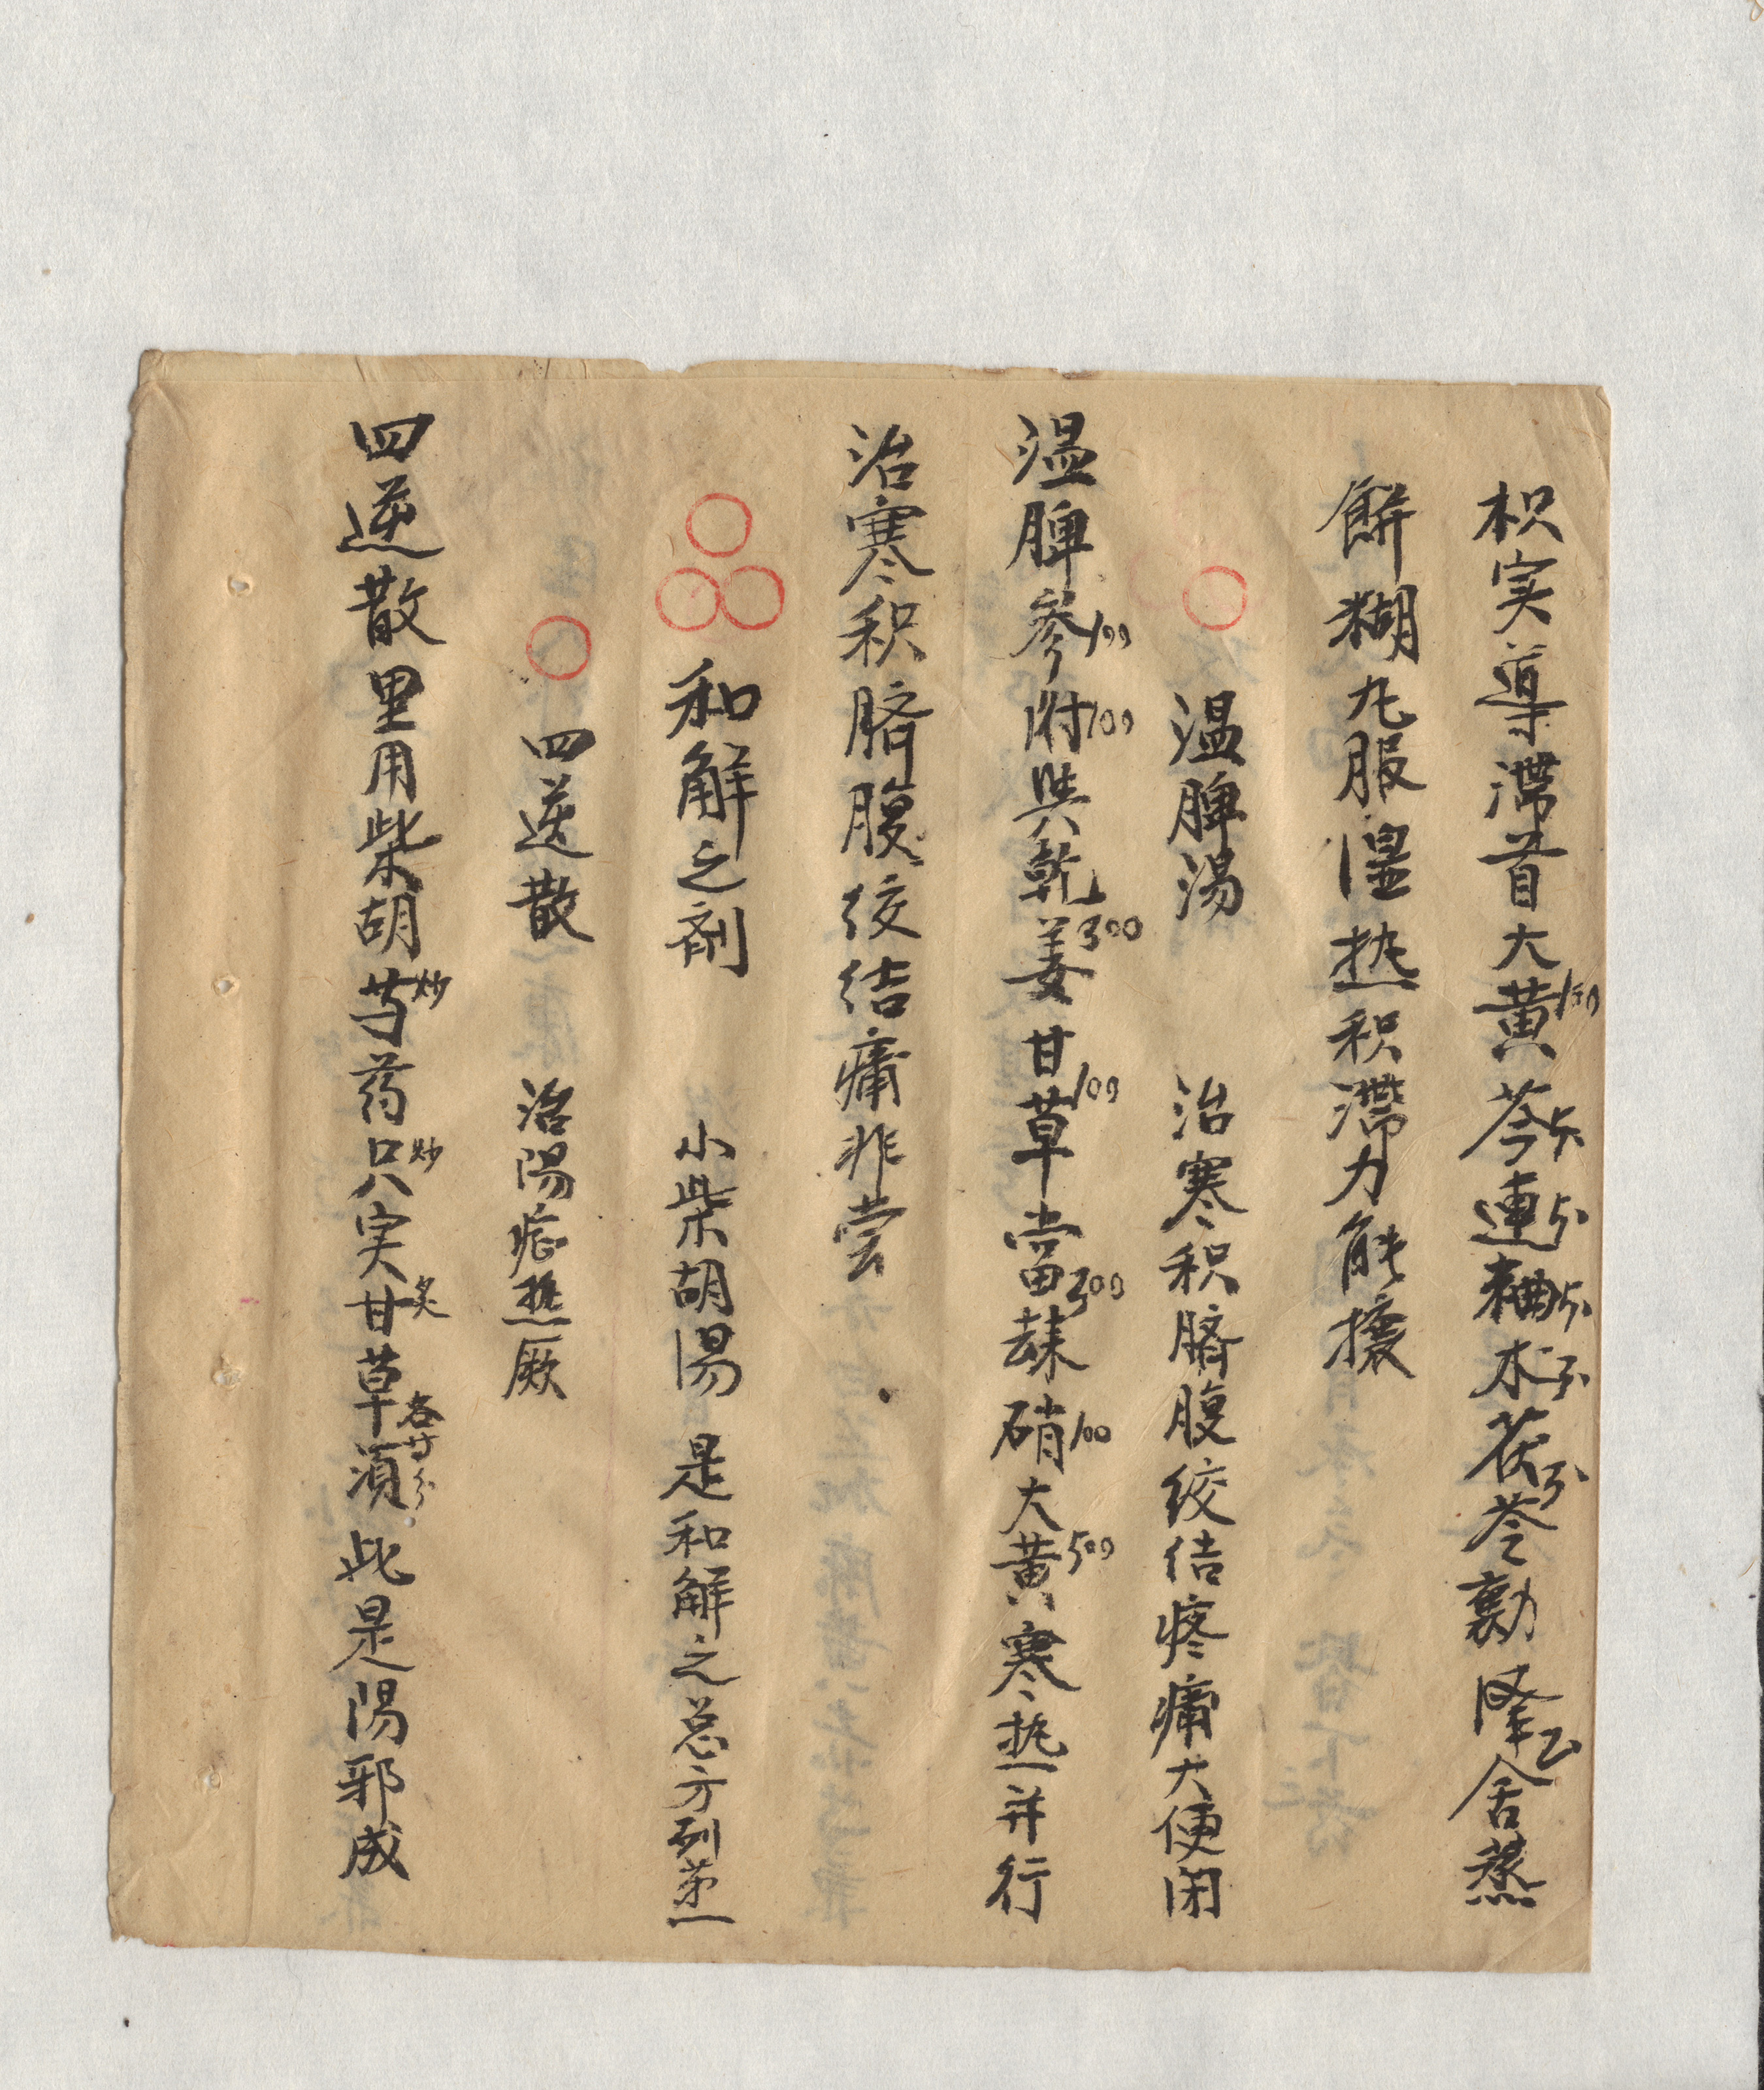 枳実導滞首大黄芩連麯术茯苓勷降舍蒸
餅糊丸服湿热积滞力能攘
温脾湯 治寒积脐腹绞结疼痛大便闭
温脾参100附100與乾姜300甘草100當300歸硝100大黄500寒热并行
治寒积脐腹绞结痛非尝
和解之剤 小柴胡湯 是和解之总方列第一
四逆散 治陽症热厥
四逆散里用柴胡芍炒药只炒実甘炙草各廿分須此是陽邪成